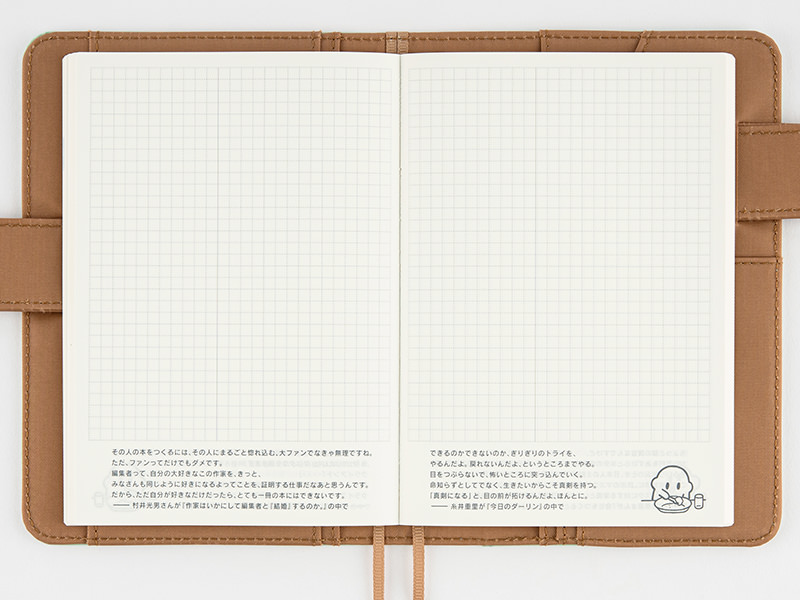 その人の本をつくるには、その人にまるごと惚れ込む、大ファンでなきゃ無理ですね。
ただ、ファンってだけでもダメです。
編集者って、自分の大好きなこの作家を、きっと、
みなさんも同じように好きになるよってことを、証明する仕事だなあと思うんです。
だから、ただ自分が好きなだけだったら、とても一冊の本にはできないです。
―― 村井光男さんが『作家はいかにして編集者と『結婚』するのか。』の中で
できるのかできないのか、ぎりぎりのトライを、
やるんだよ。戻れないんだよ、というところまでやる。
目をつぶらないで、怖いところに突っ込んでいく。
命知らずとしてでなく、生きたいからこそ真剣を持つ。
「真剣になる」と、目の前が拓けるんだよ、ほんとに。
―― 糸井重里が『今日のダーリン』の中で